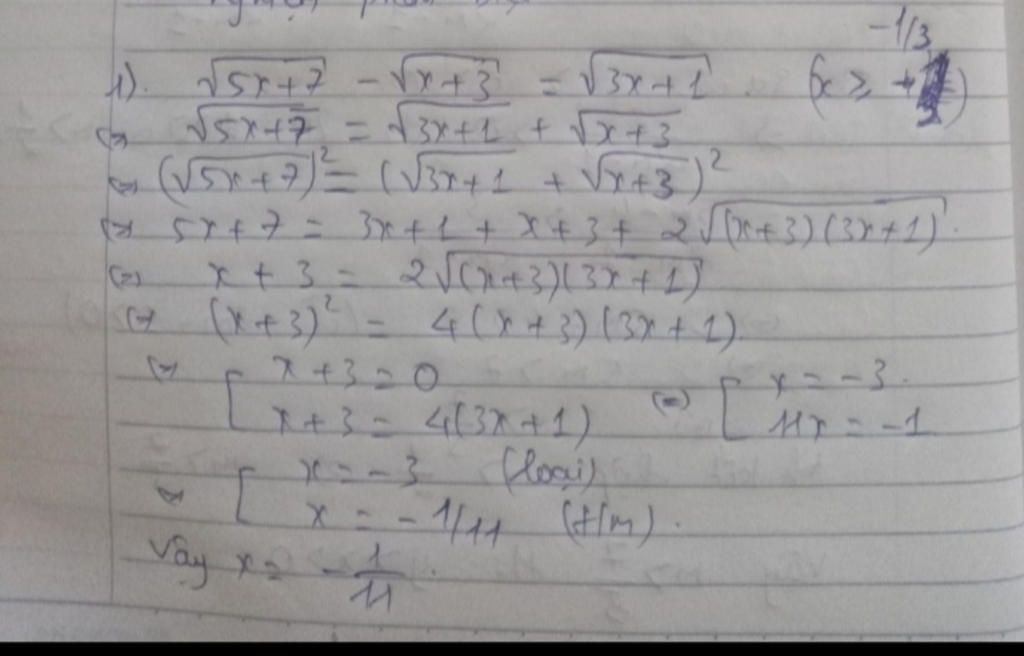 1). √(5x+7) - √(x+3) = √(3x+1) (x ≥ -1/3)
⇔ √(5x+7) = √(3x+1) + √(x+3)
⇔ (√(5x+7))² = (√(3x+1) + √(x+3))²
⇔ 5x+7 = 3x+1 + x+3 + 2√((x+3)(3x+1)).
⇔ x + 3 = 2√((x+3)(3x+1))
⇔ (x+3)² = 4(x+3)(3x+1).
⇔ [ x+3 = 0 ⇔ [ x = -3.
x+3 = 4(3x+1) 11x = -1
⇔ [ x = -3 (loại)
x = -1/11 (t/m).
Vậy x = -1/11.